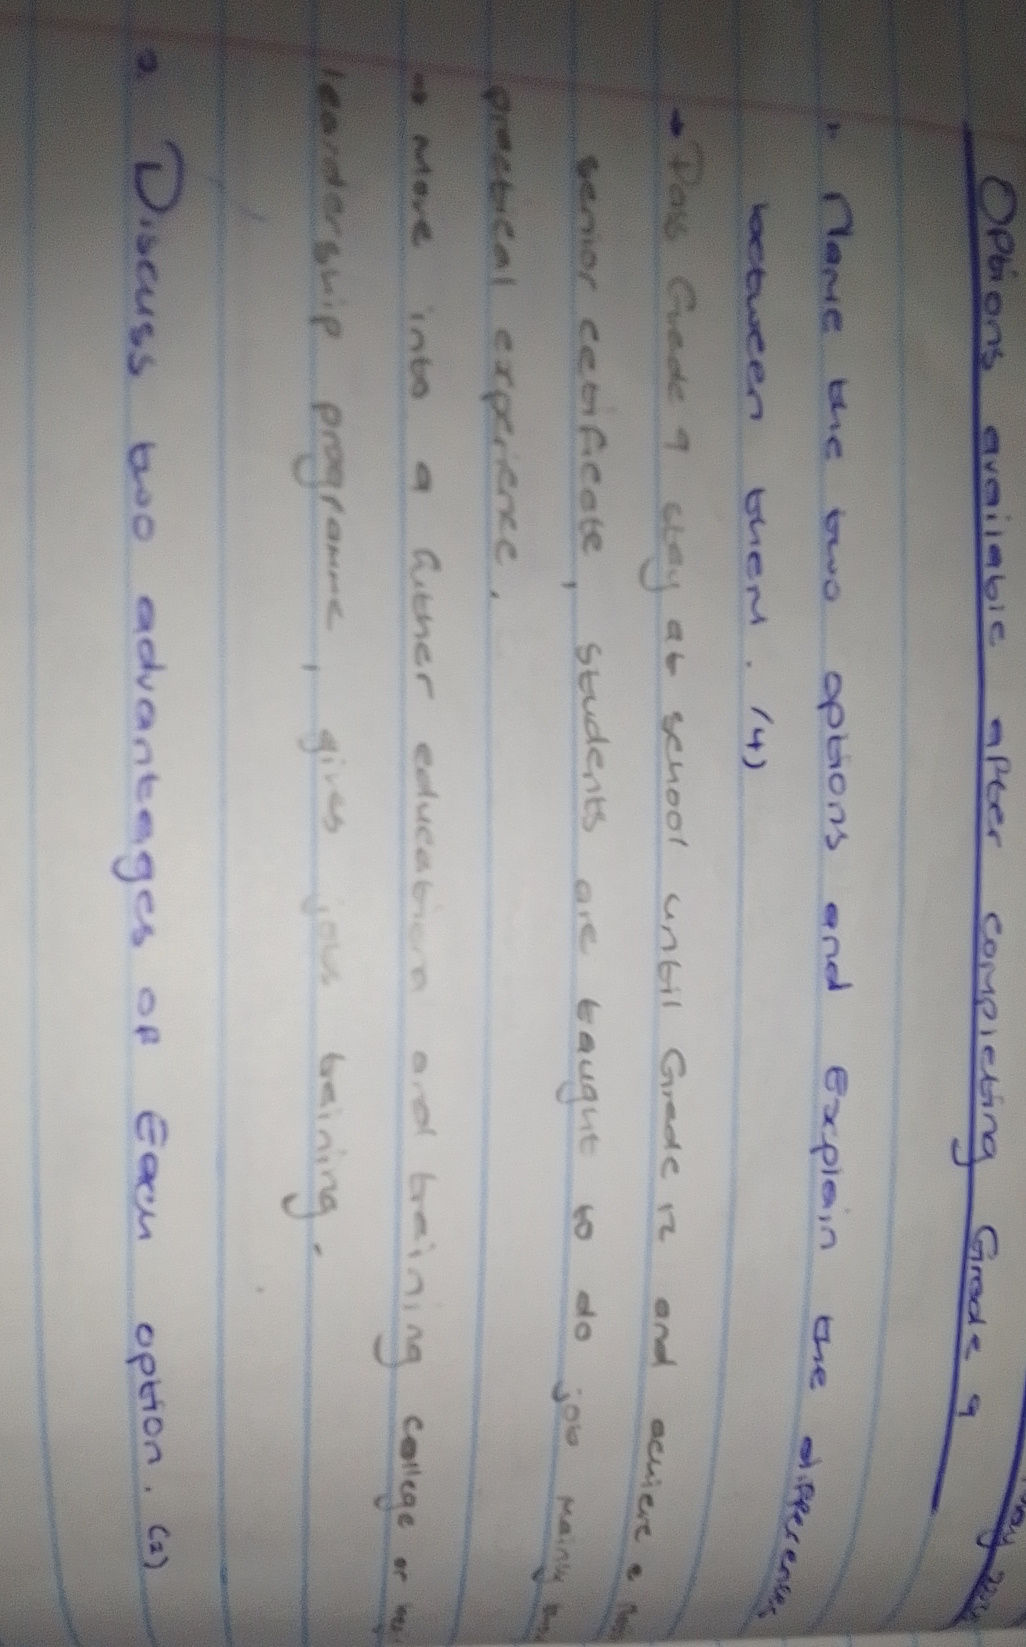 Options available after completing Grade 9
1. Name the two options and Explain the differences
between them. (4)
→ Pass Grade 9 stay at school until Grade 12 and achieve a
senior certificate, students are taught to do job mainly
practical experience.
→ Move into a futher education and training college or
leardership programme, gives job training.
2. Discuss two advantages of Each option. (2)